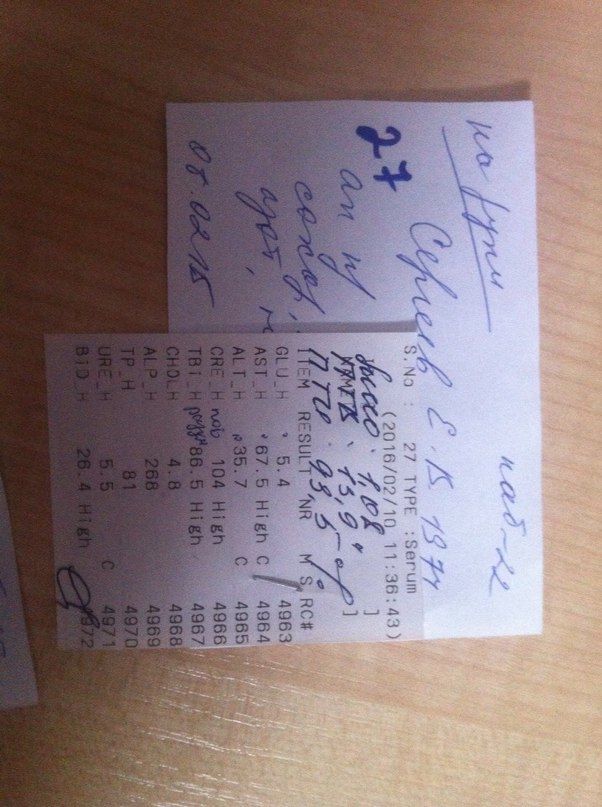 на руки
каб-22
27 Сергеев Е. В 1974
ан кр
сахар,
азот,
08.02.16
S.No : 27 TYPE :Serum
(2016/02/10 11:36:43)
1,08 ]
13,9"
ПТИ 93,5%
ITEM RESULT NR M S RC#
GLU_H 5.4 4963
AST_H 67.5 High C 4964
ALT_H 35.7 C 4965
CRE_H 104 High 4966
TBI_H 86.5 High 4967
CHO_H 4.8 4968
ALP_H 268 4969
TP_H 81 4970
URE_H 5.5 C 4971
BiD_H 26.4 High 4972